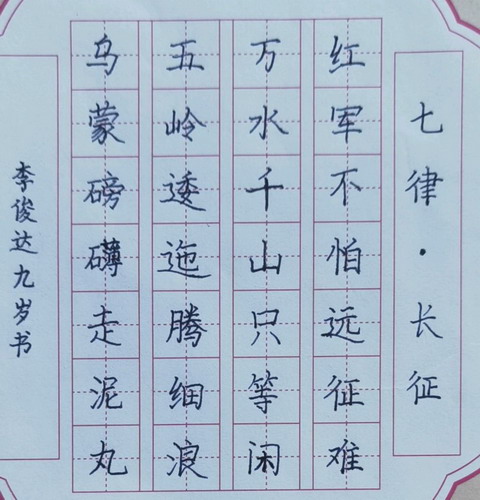 七律·长征
红军不怕远征难
万水千山只等闲
五岭逶迤腾细浪
乌蒙磅礴走泥丸
李俊达九岁书